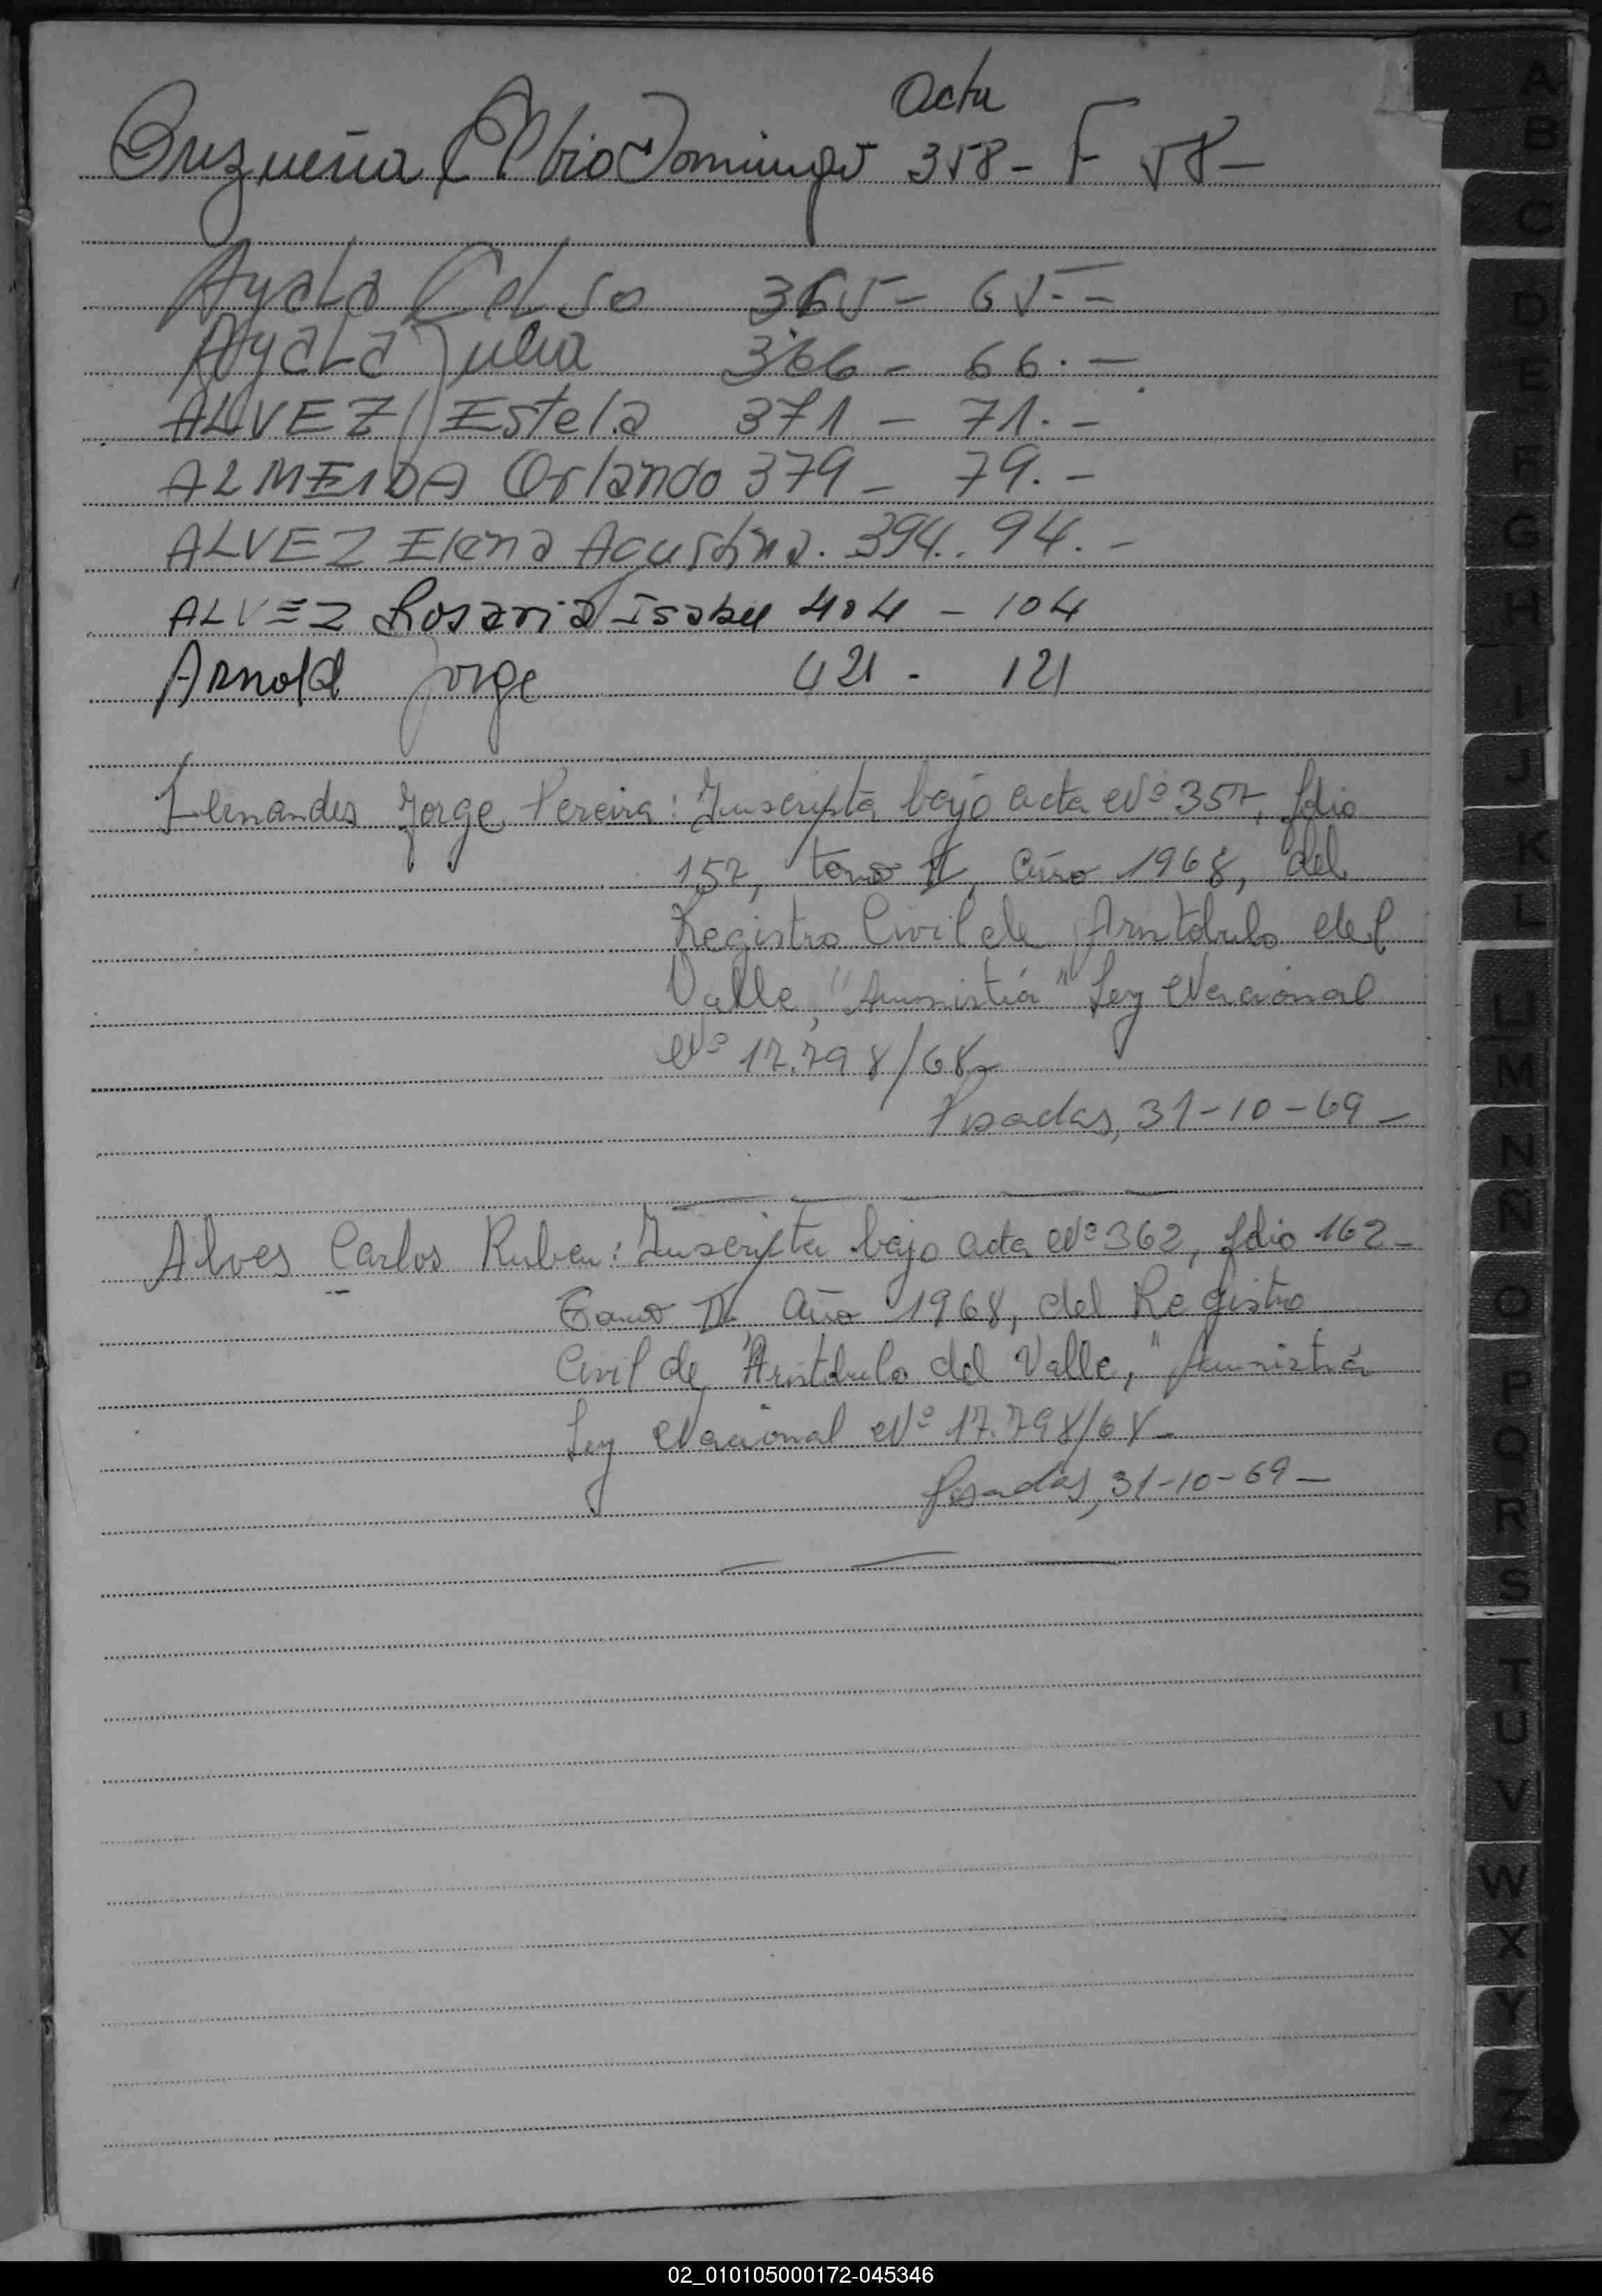 Acta
Orzueña Elbio Domingo 358 - F 58 -
Ayala Celso 365 - 65. -
Ayala Julia 366 - 66. -
ALVEZ Estela 371 - 71. -
ALMEIDA Orlando 379 - 79. -
ALVEZ Elena Agustina. 394.. 94. -
ALVEZ Rosaria Isabel 404 - 104
Arnold Jorge 421 - 121
Fernandes Jorge Pereira: Inscripta bajo acta Nº 357, folio
157, tomo II, año 1968, del
Registro Civil de Aristobulo del
Valle, "Amnistía" Ley Nacional
Nº 17.798/68 -
Posadas, 31-10-69 -
Alves Carlos Ruben: Inscripta bajo acta Nº 362, folio 162 -
Tomo II, año 1968, del Registro
Civil de Aristobulo del Valle, "Amnistía
Ley Nacional Nº 17.798/68 -
Posadas, 31-10-69 -
A
B
C
D
E
F
G
H
I
J
K
L
LL
M
N
Ñ
O
P
Q
R
S
T
U
V
W
X
Y
Z
02_010105000172-045346